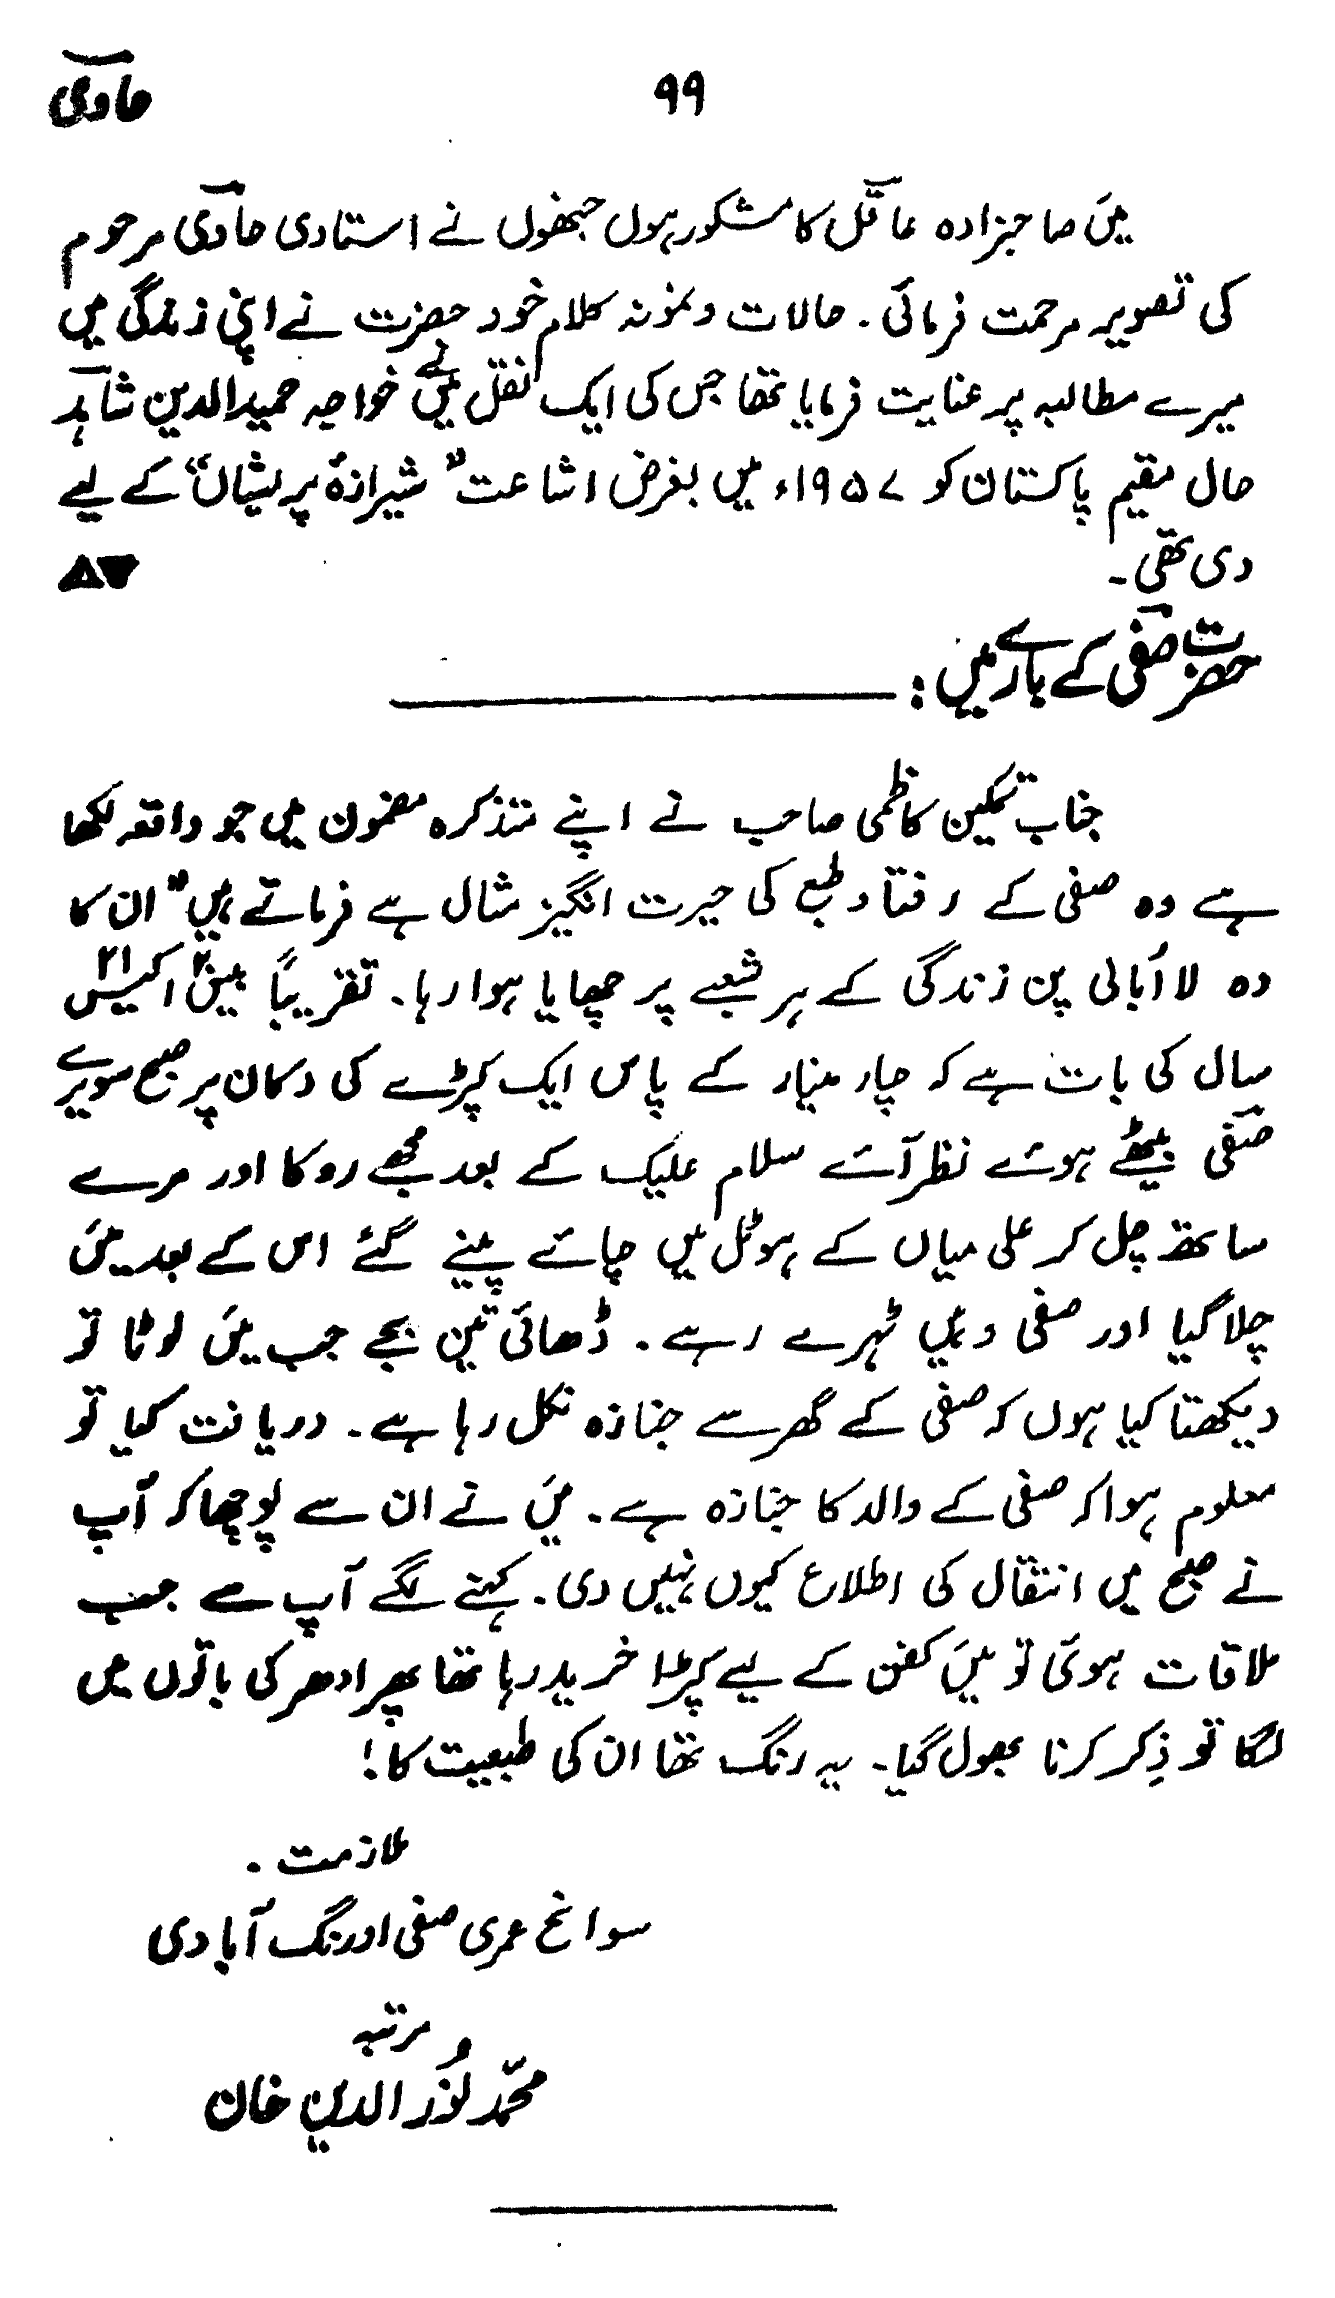 حاوی
۹۹
میں صاحبزادہ عاقل کا مشکور ہوں جنھوں نے استادی حاوی مرحوم
کی تصویر مرحمت فرمائی۔ حالات و نمونہ کلام خود حضرت نے اپنی زندگی میں
میرے مطالبہ پر عنایت فرمایا تھا جس کی ایک نقل میں نے خواجہ حمید الدین شاہد
حال مقیم پاکستان کو ۱۹۵۷ء میں بغرض اشاعت "شیرازہ پریشاں" کے لیے
دی تھی۔
حضرت صفی کے بارے میں :
جناب تمکین کاظمی صاحب نے اپنے متذکرہ مضمون میں جو واقعہ لکھا
ہے وہ صفی کے رفتاد طبع کی حیرت انگیز مثال ہے فرماتے ہیں" ان کا
وہ لا اُبالی پن زندگی کے ہر شعبے پر چھایا ہوا رہا۔ تقریباً بیس۲۰ اکیس۲۱
سال کی بات ہے کہ چار مینار کے پاس ایک کپڑے کی دکان پر صبح سویرے
صفی بیٹھے ہوئے نظر آئے سلام علیک کے بعد مجھے روکا اور مرے
ساتھ چل کر علی میاں کے ہوٹل میں چائے پینے گئے اس کے بعد میں
چلا گیا اور صفی وہیں ٹہرے رہے۔ ڈھائی تین بجے جب میں لوٹا تو
دیکھتا کیا ہوں کہ صفی کے گھر سے جنازہ نکل رہا ہے۔ دریافت کیا تو
معلوم ہوا کہ صفی کے والد کا جنازہ ہے۔ میں نے ان سے پوچھا کہ آپ
نے صبح میں انتقال کی اطلاع کیوں نہیں دی۔ کہنے لگے آپ سے جب
ملاقات ہوئی تو میں کفن کے لیے کپڑا خرید رہا تھا پھر ادھر کی باتوں میں
لگا تو ذِکر کرنا بھول گیا۔ یہ رنگ تھا ان کی طبعیت کا!
ملازمت۔
سوانح عمری صفی اورنگ آبادی
مرتبہ
محمّد نُور الدین خان